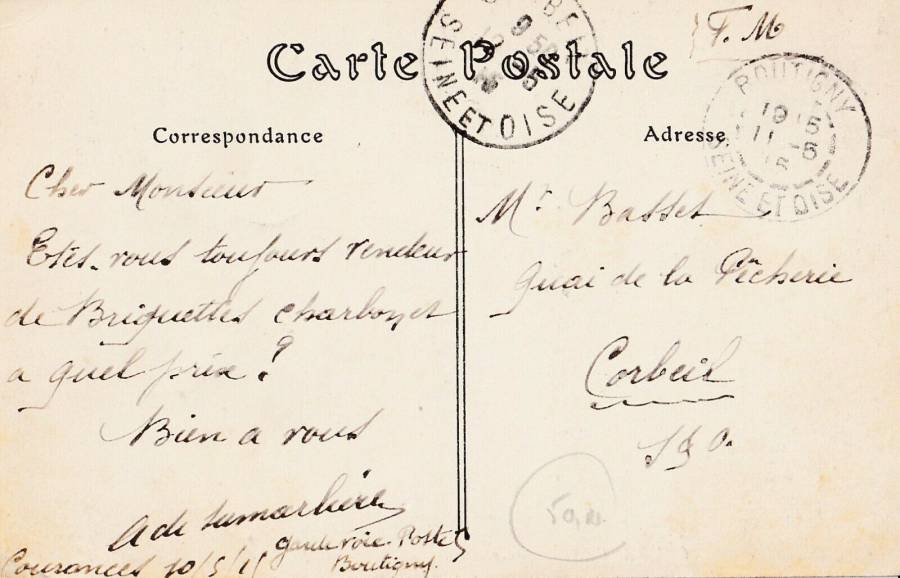 Carte Postale
F. M
BOUTIGNY
19 5
11 5
SEINE ET OISE
9 50
5
SEINE ET OISE
Correspondance
Cher Monsieur
Etes-vous toujours vendeur
de Briquettes charbon et
a quel prix ?
Bien a vous
garde voie. Poste 5
Boutigny.
Courances 10/5/15
Adresse
Mr Basset
Quai de la Pêcherie
Corbeil
S & O.